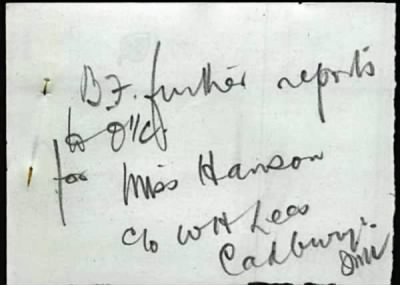 B.F. further reports
to O i/c
for Miss Hanson
c/o W H Lees
Cadbury.